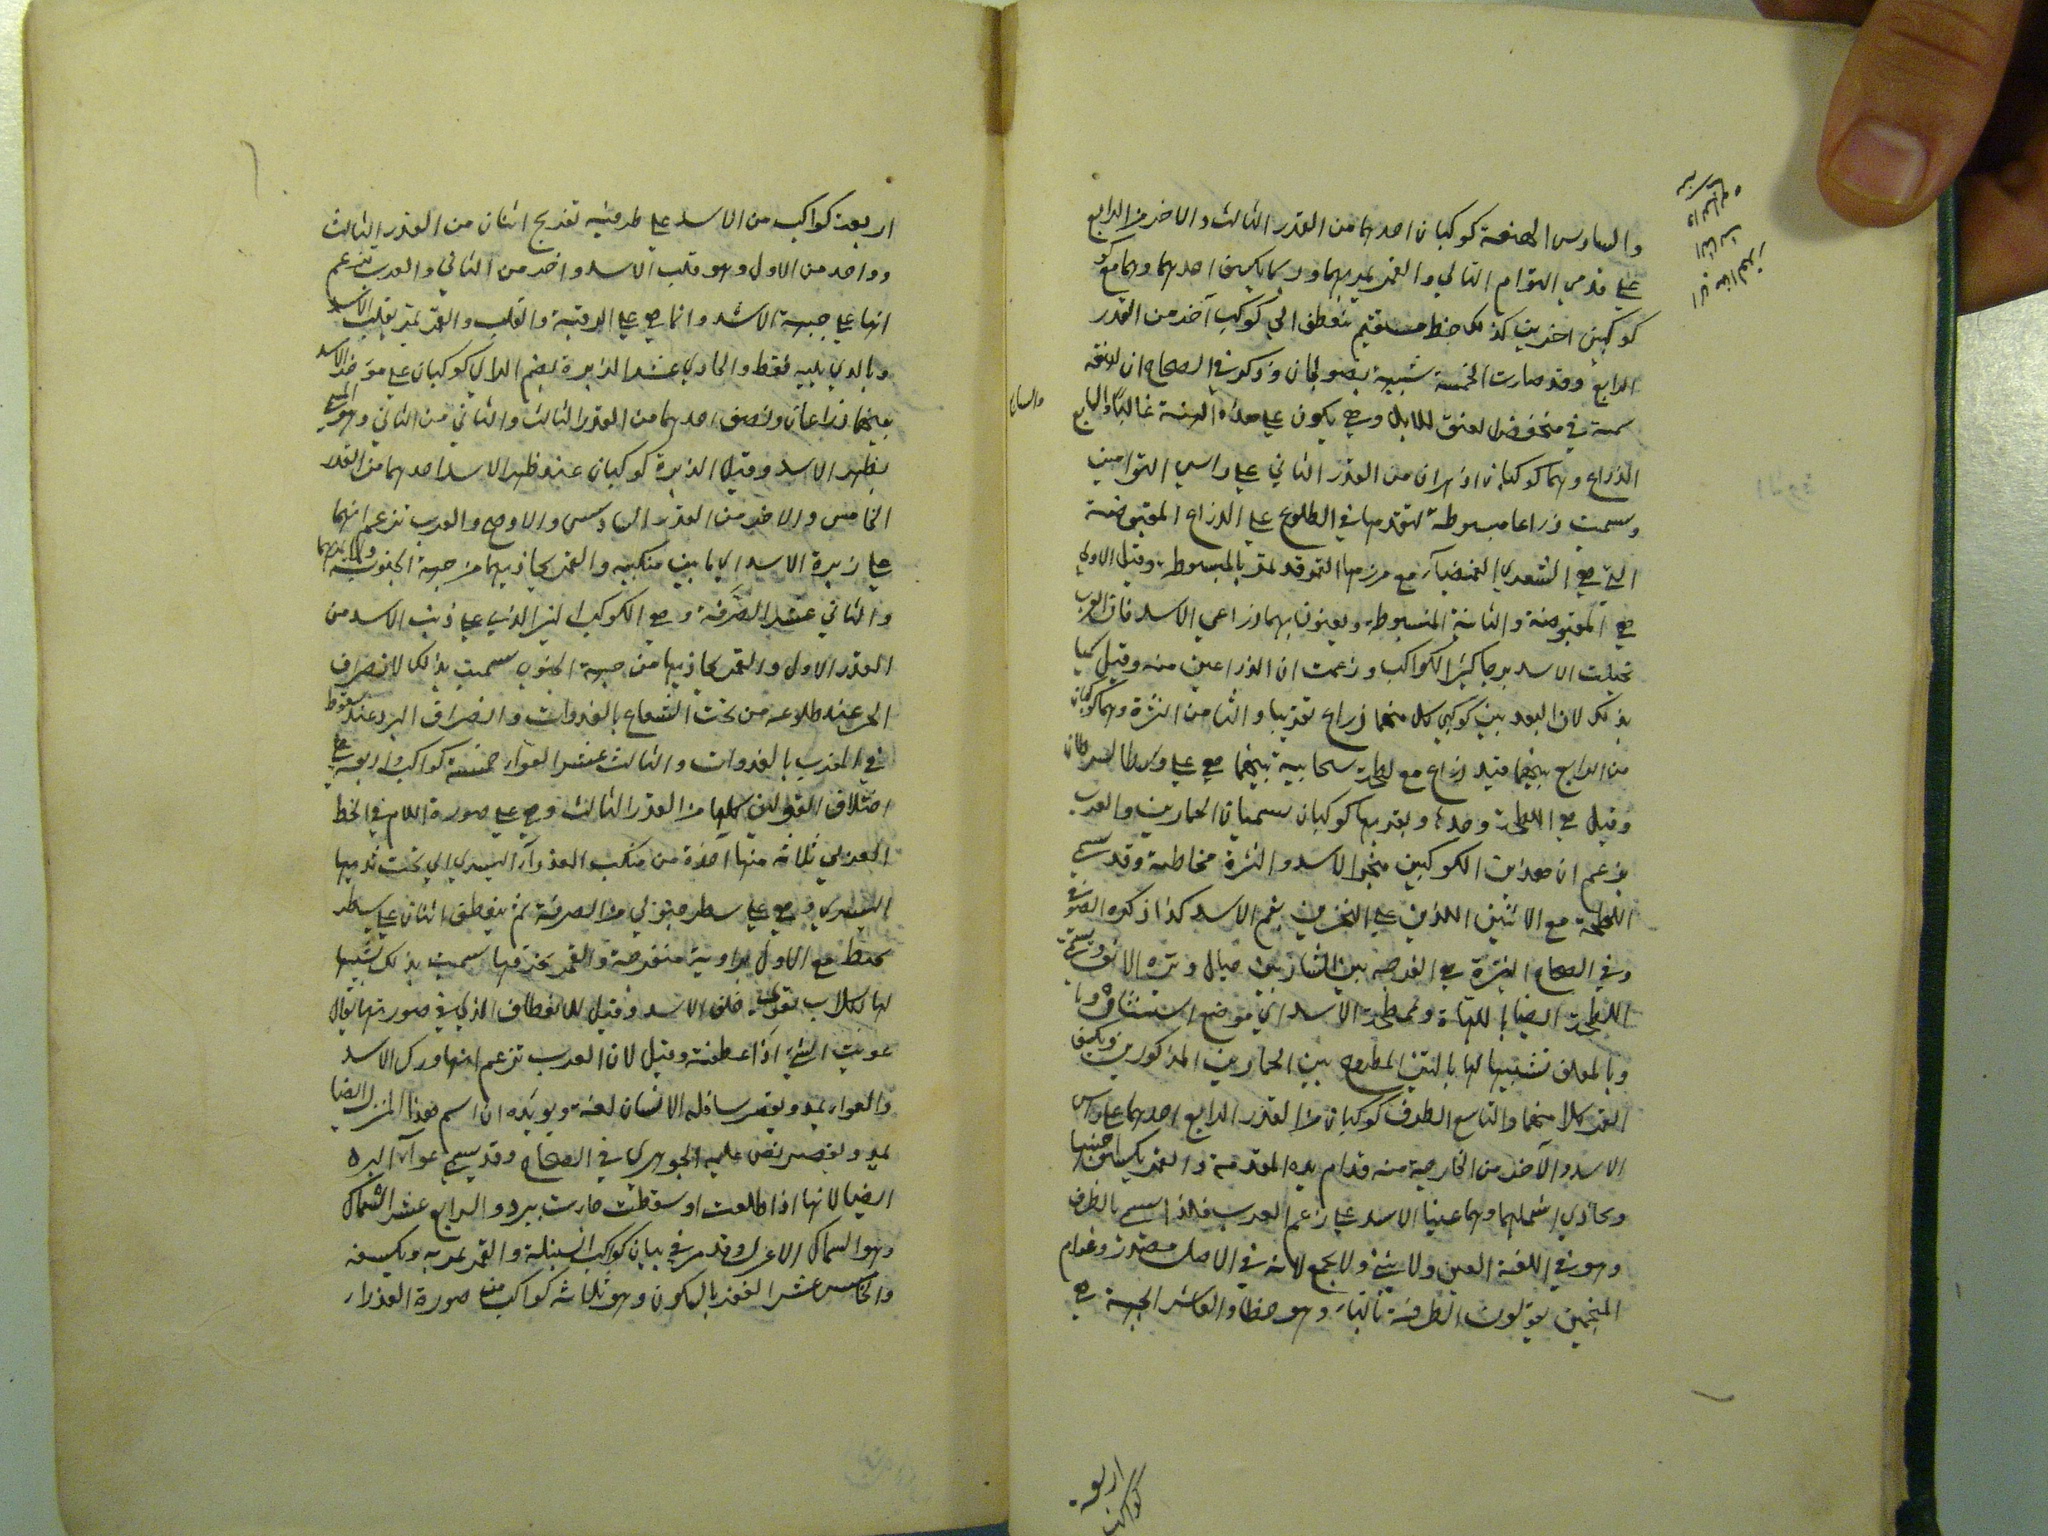 والسادس الهنعة كوكبان احدهما من القدر الثالث والاخر من الرابع
على قدمي التوام التالي والقمر يمر بهما وربما يكسف احدهما وهما مع
كوكبين اخرين كذلك خط مستقيم ينعطف الى كوكب آخر من القدر
الرابع وقد صارت الخمسة شبيهة بصولجان وذكر في الصحاح ان الهنعة
سمة في منخفض العنق للابل وهي يكون على هذه الهيئة غالبا والسابع
الذراع وهما كوكبان ازهران من القدر الثاني على راسي التوامين
وسميت ذراعا مبسوطة لتقدمها في الطلوع على الذراع المقبوضة
التي هي الشعرى الغميضآء مع مرزمها القمر قد يمر بالمبسوطة وقيل الاولى
هي المقبوضة والثانية المبسوطة ويعنون بهما ذراعي الاسد فان العرب
تخيلت الاسد برجا كثير الكواكب وزعمت ان الذراعين منه وقيل سميا
بذلك لان البعد بين كوكبي كل منهما ذراع تقريبا والثامن النثرة وهما كوكبان
من الرابع بينهما قيد ذراع مع لطخة سحابية بينهما هي على وسط السرطان
وقيل هي اللطخة وحدها وبقربها كوكبان يسميان الحمارين والعرب
يزعم ان هذين الكوكبين منخرا الاسد والنثرة مخاطمة وقد تسمى
اللطخة مع الاثنين اللذين على المنخرين بفم الاسد كذا ذكره الصوفي
وفي الصحاح النثرة هي الفرجة بين الشاربين حيال وترة الانف ويسمى
اللطخة ايضا باللهاة ومخطة الاسد اي موضع استنثاقه وبا
وبالمعلف تشبيها لها بالتبن المطروح بين الحمارين المذكورين ويكسف
القمر كلا منهما والتاسع الطرف كوكبان من القدر الرابع احدهما على راس
الاسد والآخر من الخارجة منه قدام يده المقدمة والقمر يكسف جنوبيها
ويحاذي شمالهما وهما عينا الاسد على زعم العرب فلذا سمى بالطرف
وهو في اللغة العين ولا يثنى ولا يجمع لانه في الاصل مصدر وعوام
المنجمين يقولون الطرفة بالتآء وهو خطا والعاشر الجبهة هي
والسابع
اربعة
كواكب
اربعة كواكب من الاسد على طرفيه تعريج اثنان من القدر الثالث
وواحد من الاول وهو قلب الاسد واخر من الثاني والعرب تزعم
انها على جبهة الاسد وانما هي على الرقبة والقلب والقمر يمر بقلب الاسد
وبالذي يليه فقط والحادي عشر الزبرة بضم الزاي كوكبان على مؤخر الاسد
بينهما ذراعان ونصف احدهما من القدر الثالث والثاني من الثاني وهو المسمى
بظهر الاسد وقيل الزبرة كوكبان عند ظهر الاسد احدهما من القدر
الخامس والاخر من القدر السادس والاوضح والعرب تزعم انهما
على زبرة الاسد اي ما بين منكبيه والقمر يحاذيهما من جهة الجنوب
والثاني عشر الصرفة وهي الكوكب النير الذي على ذنب الاسد من
القدر الاول والقمر يحاذيها من جهة الجنوب سميت بذلك لانصراف
الحر عند طلوعه من تحت الشعاع بالغدوات وانصراف البرد عند سقوط
في المغرب بالغدوات والثالث عشر العوآء خمسة كواكب او اربعة على
اختلاف القولين كلها من القدر الثالث وهي على صورة اللام في الخط
العربي ثلاثة منها آخذة من منكب العذرآء اليسرى الى تحت ثديها
اليسرى وهي على سطر جنوبي من الصرفة ثم ينعطف اثنان على سطر
يحيط مع الاول بزاوية منفرجة والقمر يخرقها سميت بذلك تشبيها
لها بكلاب تعوى خلف الاسد وقيل للانعطاف الذي في صورتها يقال
عويت الشئ اذا عطفته وقيل لان العرب تزعم انها ورك الاسد
والعواء يمد ويقصر سافلة الانسان لغة ويؤيده ان اسم هذا المنزل ايضا
يمد ويقصر نص عليه الجوهري في الصحاح وقد يسمى عوآء البرد
ايضا لانها اذا طلعت او سقطت جاءت ببرد والرابع عشر السماك
وهو السماك الاعزل وقد مر في بيان كواكب السنبلة والقمر يمر به ويكسفه
والخامس عشر الغفر بالسكون وهو ثلاثة كواكب من صورة العذراء